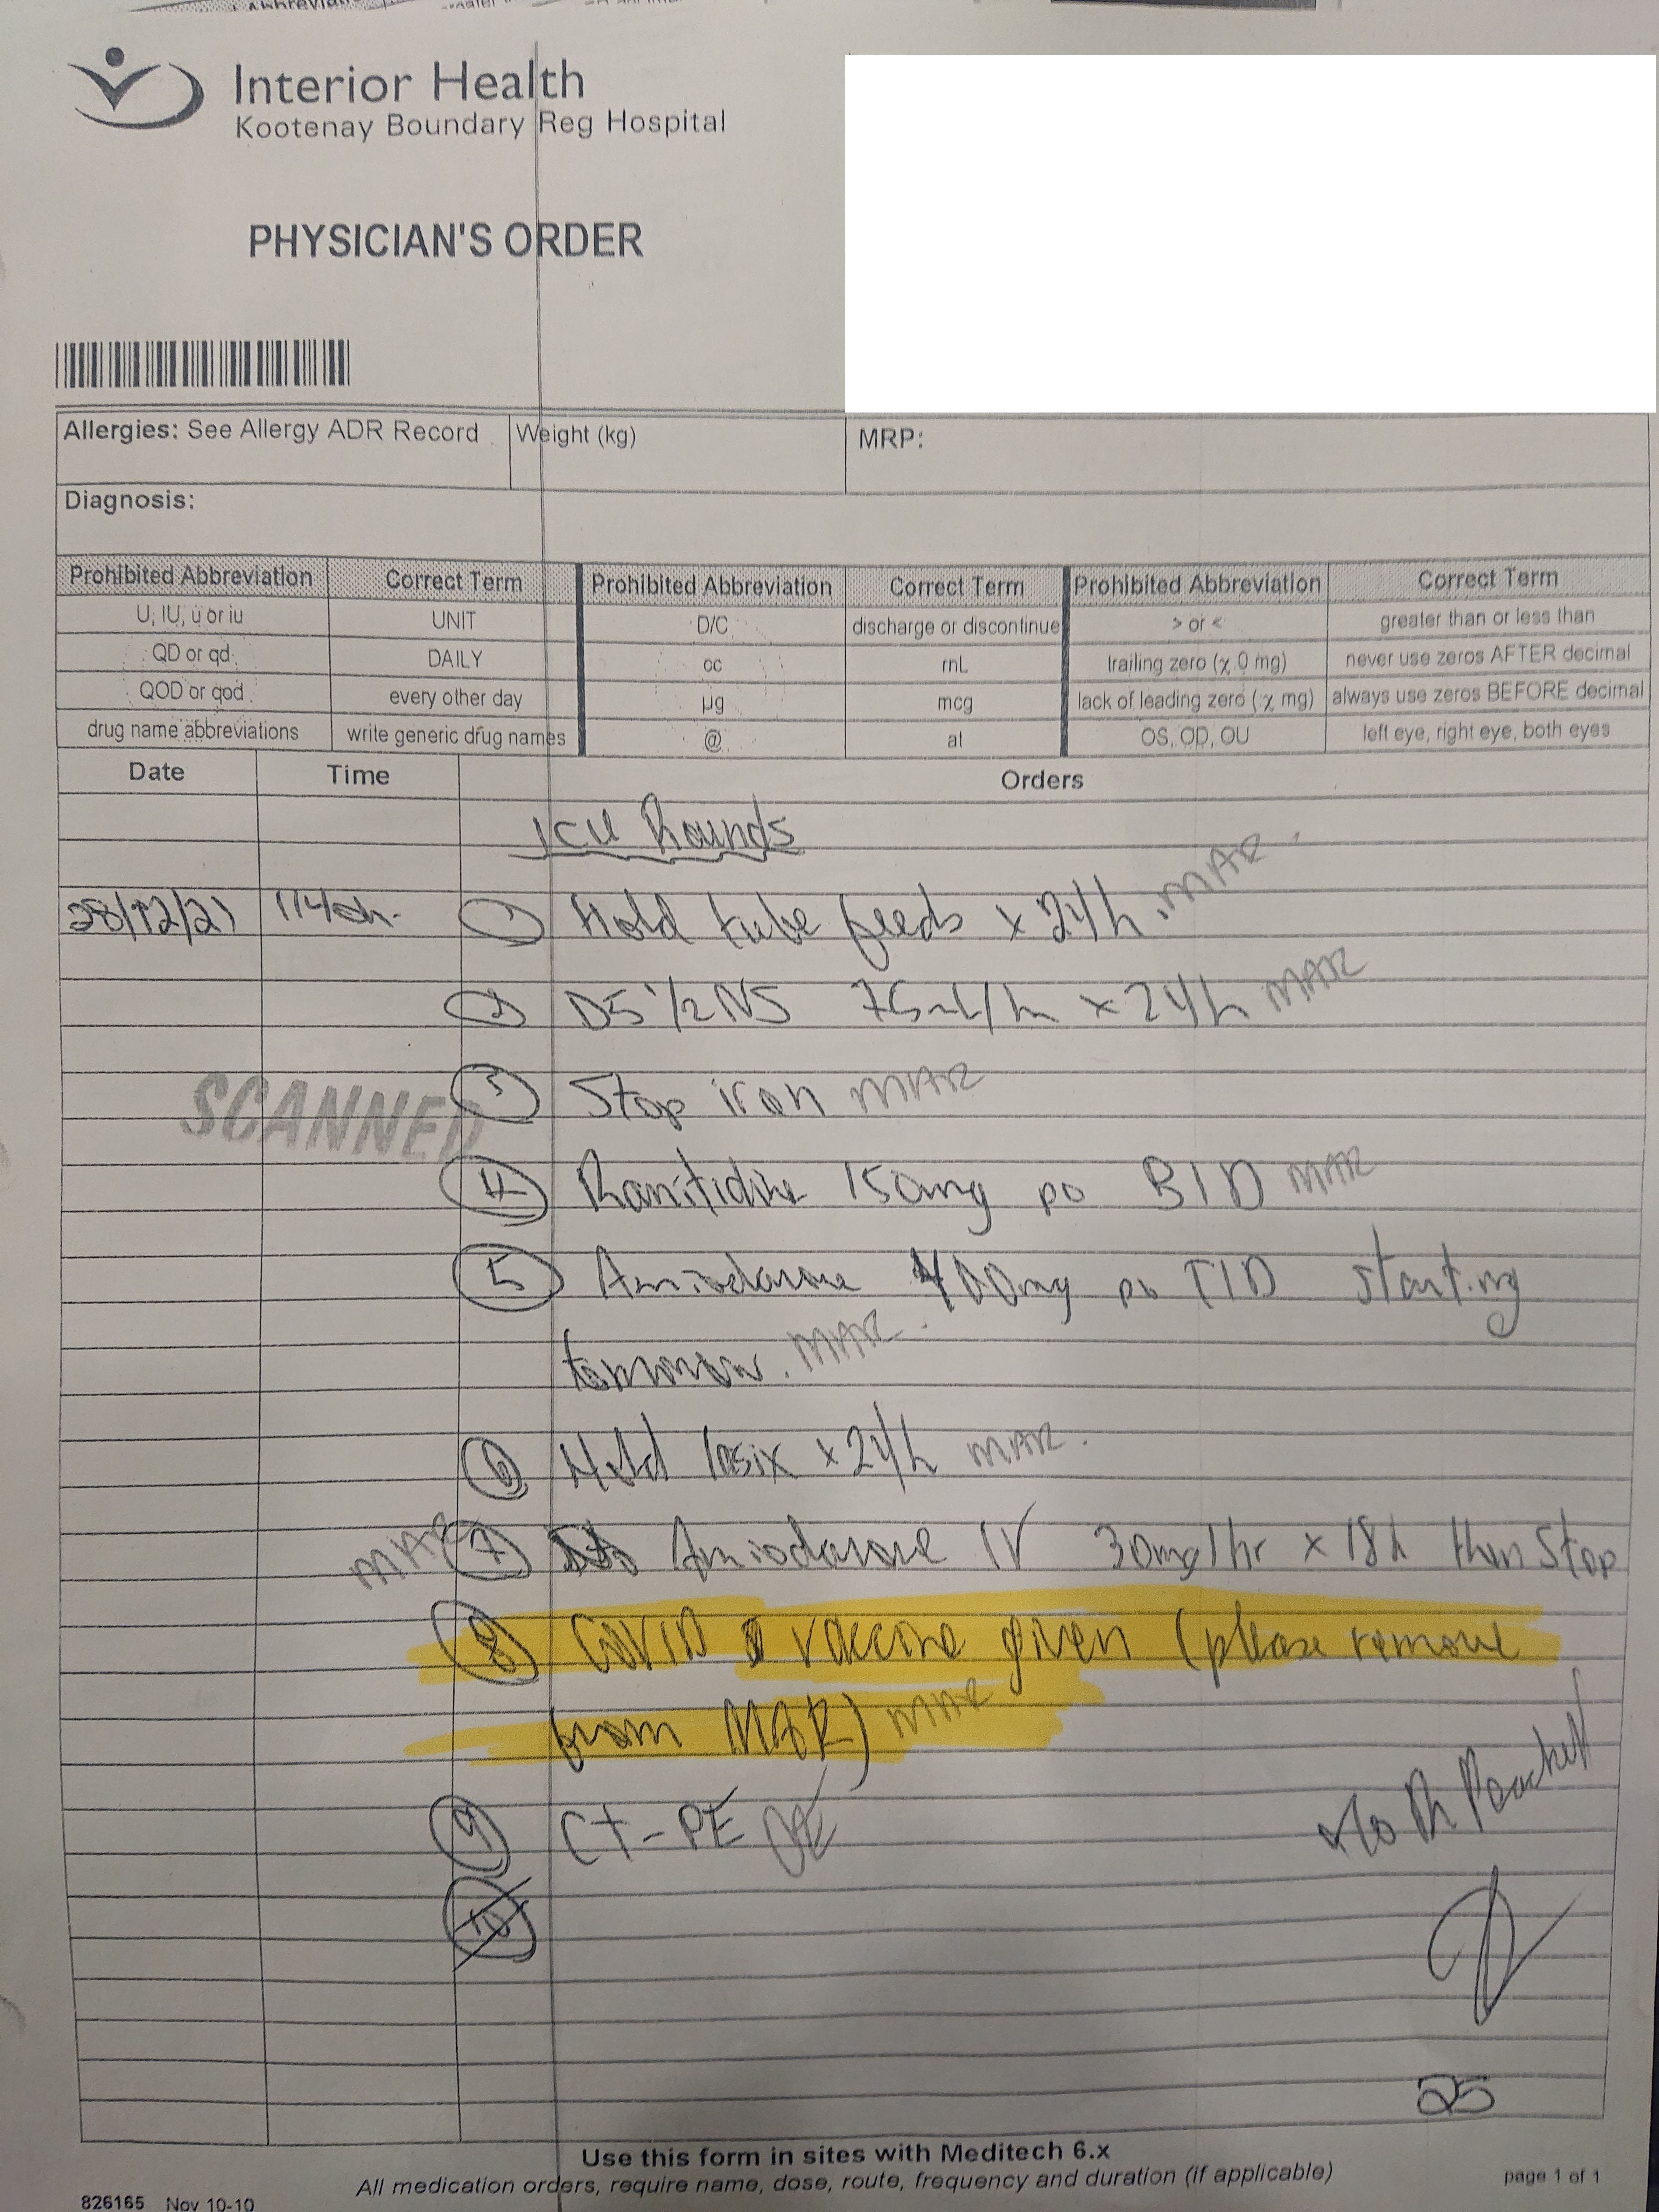 Interior Health
Kootenay Boundary Reg Hospital
PHYSICIAN'S ORDER
Allergies: See Allergy ADR Record Weight (kg) MRP:
Diagnosis:
Prohibited Abbreviation Correct Term Prohibited Abbreviation Correct Term Prohibited Abbreviation Correct Term
U, IU, u or iu UNIT D/C discharge or discontinue > or < greater than or less than
QD or qd DAILY cc mL trailing zero (χ.0 mg) never use zeros AFTER decimal
QOD or qod every other day µg mcg lack of leading zero (.χ mg) always use zeros BEFORE decimal
drug name abbreviations write generic drug names @ at OS, OD, OU left eye, right eye, both eyes
Date Time Orders
ICU Rounds
28/12/21 1140h. 1 Hold tube feeds x 24h. MAR.
2 D5 1/2NS 75mL/h x 24h MAR
SCANNED 3 Stop iron MAR
4 Ranitidine 150mg po BID MAR
5 Amiodarone 400mg po TID starting
tomorrow. MAR.
6 Hold lasix x 24h MAR.
MAR 7 Amiodarone IV 30mg/hr x 18h then stop
8 COVID vaccine given (please remove
from MAR) MAR
9 CT-PE OE
to Dr
10
25
Use this form in sites with Meditech 6.x
All medication orders, require name, dose, route, frequency and duration (if applicable)
page 1 of 1
826165 Nov 10-10